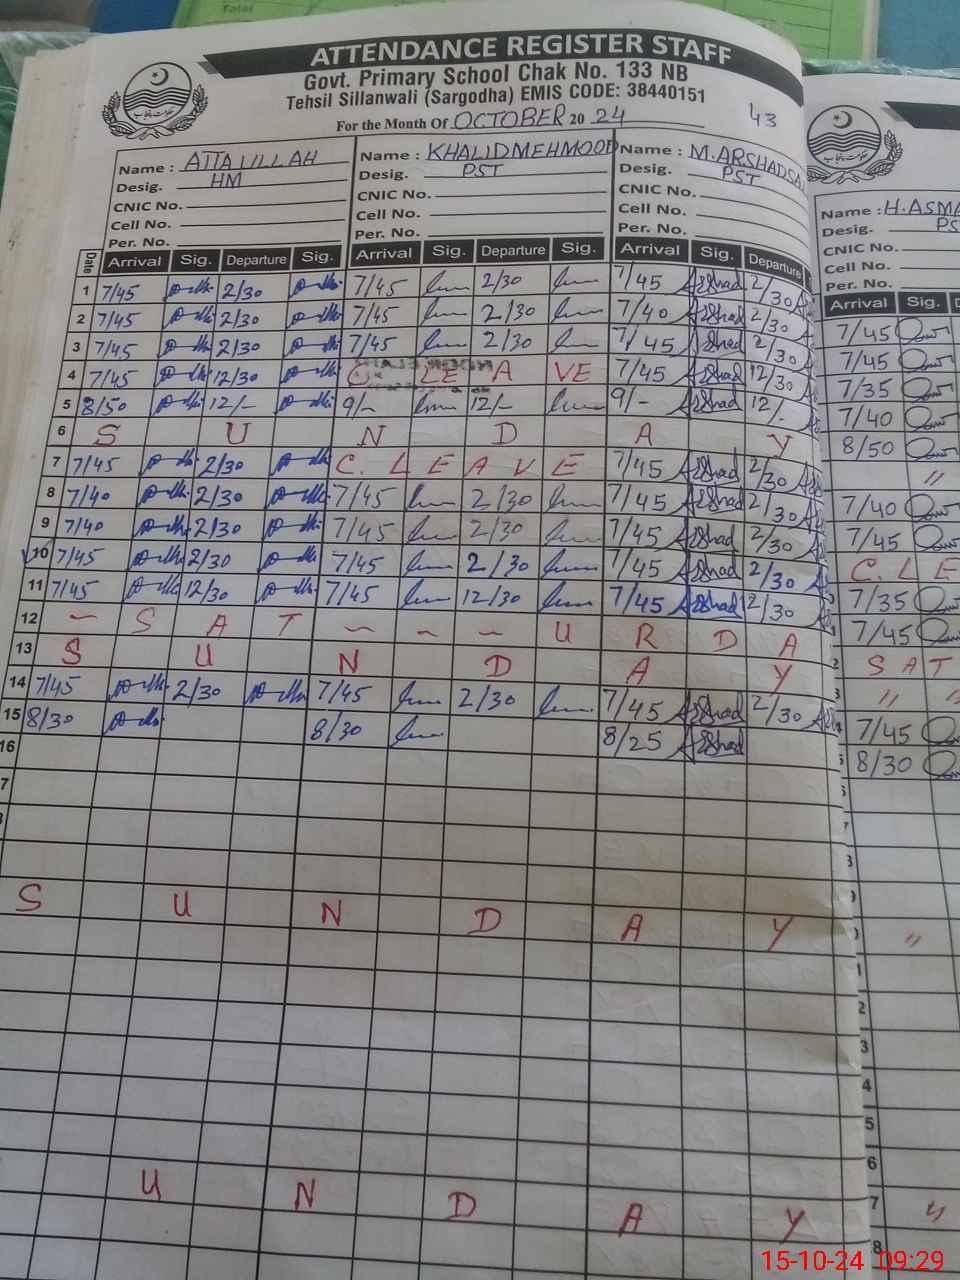 Total
ATTENDANCE REGISTER STAFF
Govt. Primary School Chak No. 133 NB
Tehsil Sillanwali (Sargodha) EMIS CODE: 38440151
For the Month Of OCTOBER 20 24
43
Name : ATTA ULLAH Name : KHALID MEHMOOD Name : M.ARSHADSA Name : H.ASMA
Desig. HM Desig. PST Desig. PST Desig. PS
CNIC No. CNIC No. CNIC No. CNIC No.
Cell No. Cell No. Cell No. Cell No.
Per. No. Per. No. Per. No. Per. No.
Date Arrival Sig. Departure Sig. Arrival Sig. Departure Sig. Arrival Sig. Departure Arrival Sig. D
1 7/45 2/30 7/45 2/30 7/45 Arshad 2/30 7/45
2 7/45 2/30 7/45 2/30 7/40 Arshad 2/30 7/45
3 7/45 2/30 7/45 2/30 7/45 Arshad 2/30 7/35
4 7/45 12/30 C. LEAVE 7/45 Arshad 12/30 7/40
5 8/50 12/- 9/- 12/- 9/- Arshad 12/- 8/50
6 S U N D A Y "
7 7/45 2/30 C. LEAVE 7/45 Arshad 2/30 7/40
8 7/40 2/30 7/45 2/30 7/45 Arshad 2/30 7/45
9 7/40 2/30 7/45 2/30 7/45 Arshad 2/30 C. L E
10 7/45 2/30 7/45 2/30 7/45 Arshad 2/30 7/35
11 7/45 12/30 7/45 12/30 7/45 Arshad 12/30 7/45
12 – S A T – – – U R D A SAT
13 S U N D A Y " "
14 7/45 2/30 7/45 2/30 7/45 Arshad 2/30 7/45
15 8/30 8/30 8/25 Arshad 8/30
16
S U N D A Y "
U N D A Y "
15-10-24 09:29